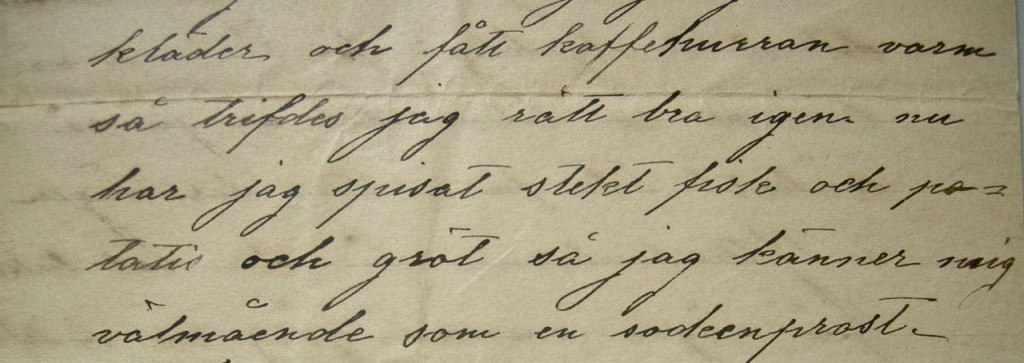 kläder och fått kaffehurran varm
så trifdes jag rätt bra igen. nu
har jag spisat stekt fisk och po=
tatis och gröt så jag känner mig
välmående som en sockenprost.